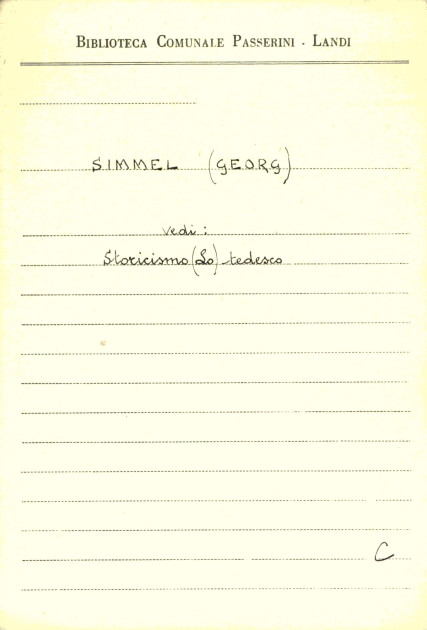 BIBLIOTECA COMUNALE PASSERINI - LANDI
SIMMEL (GEORG)
vedi:
Storicismo (Lo) tedesco
C